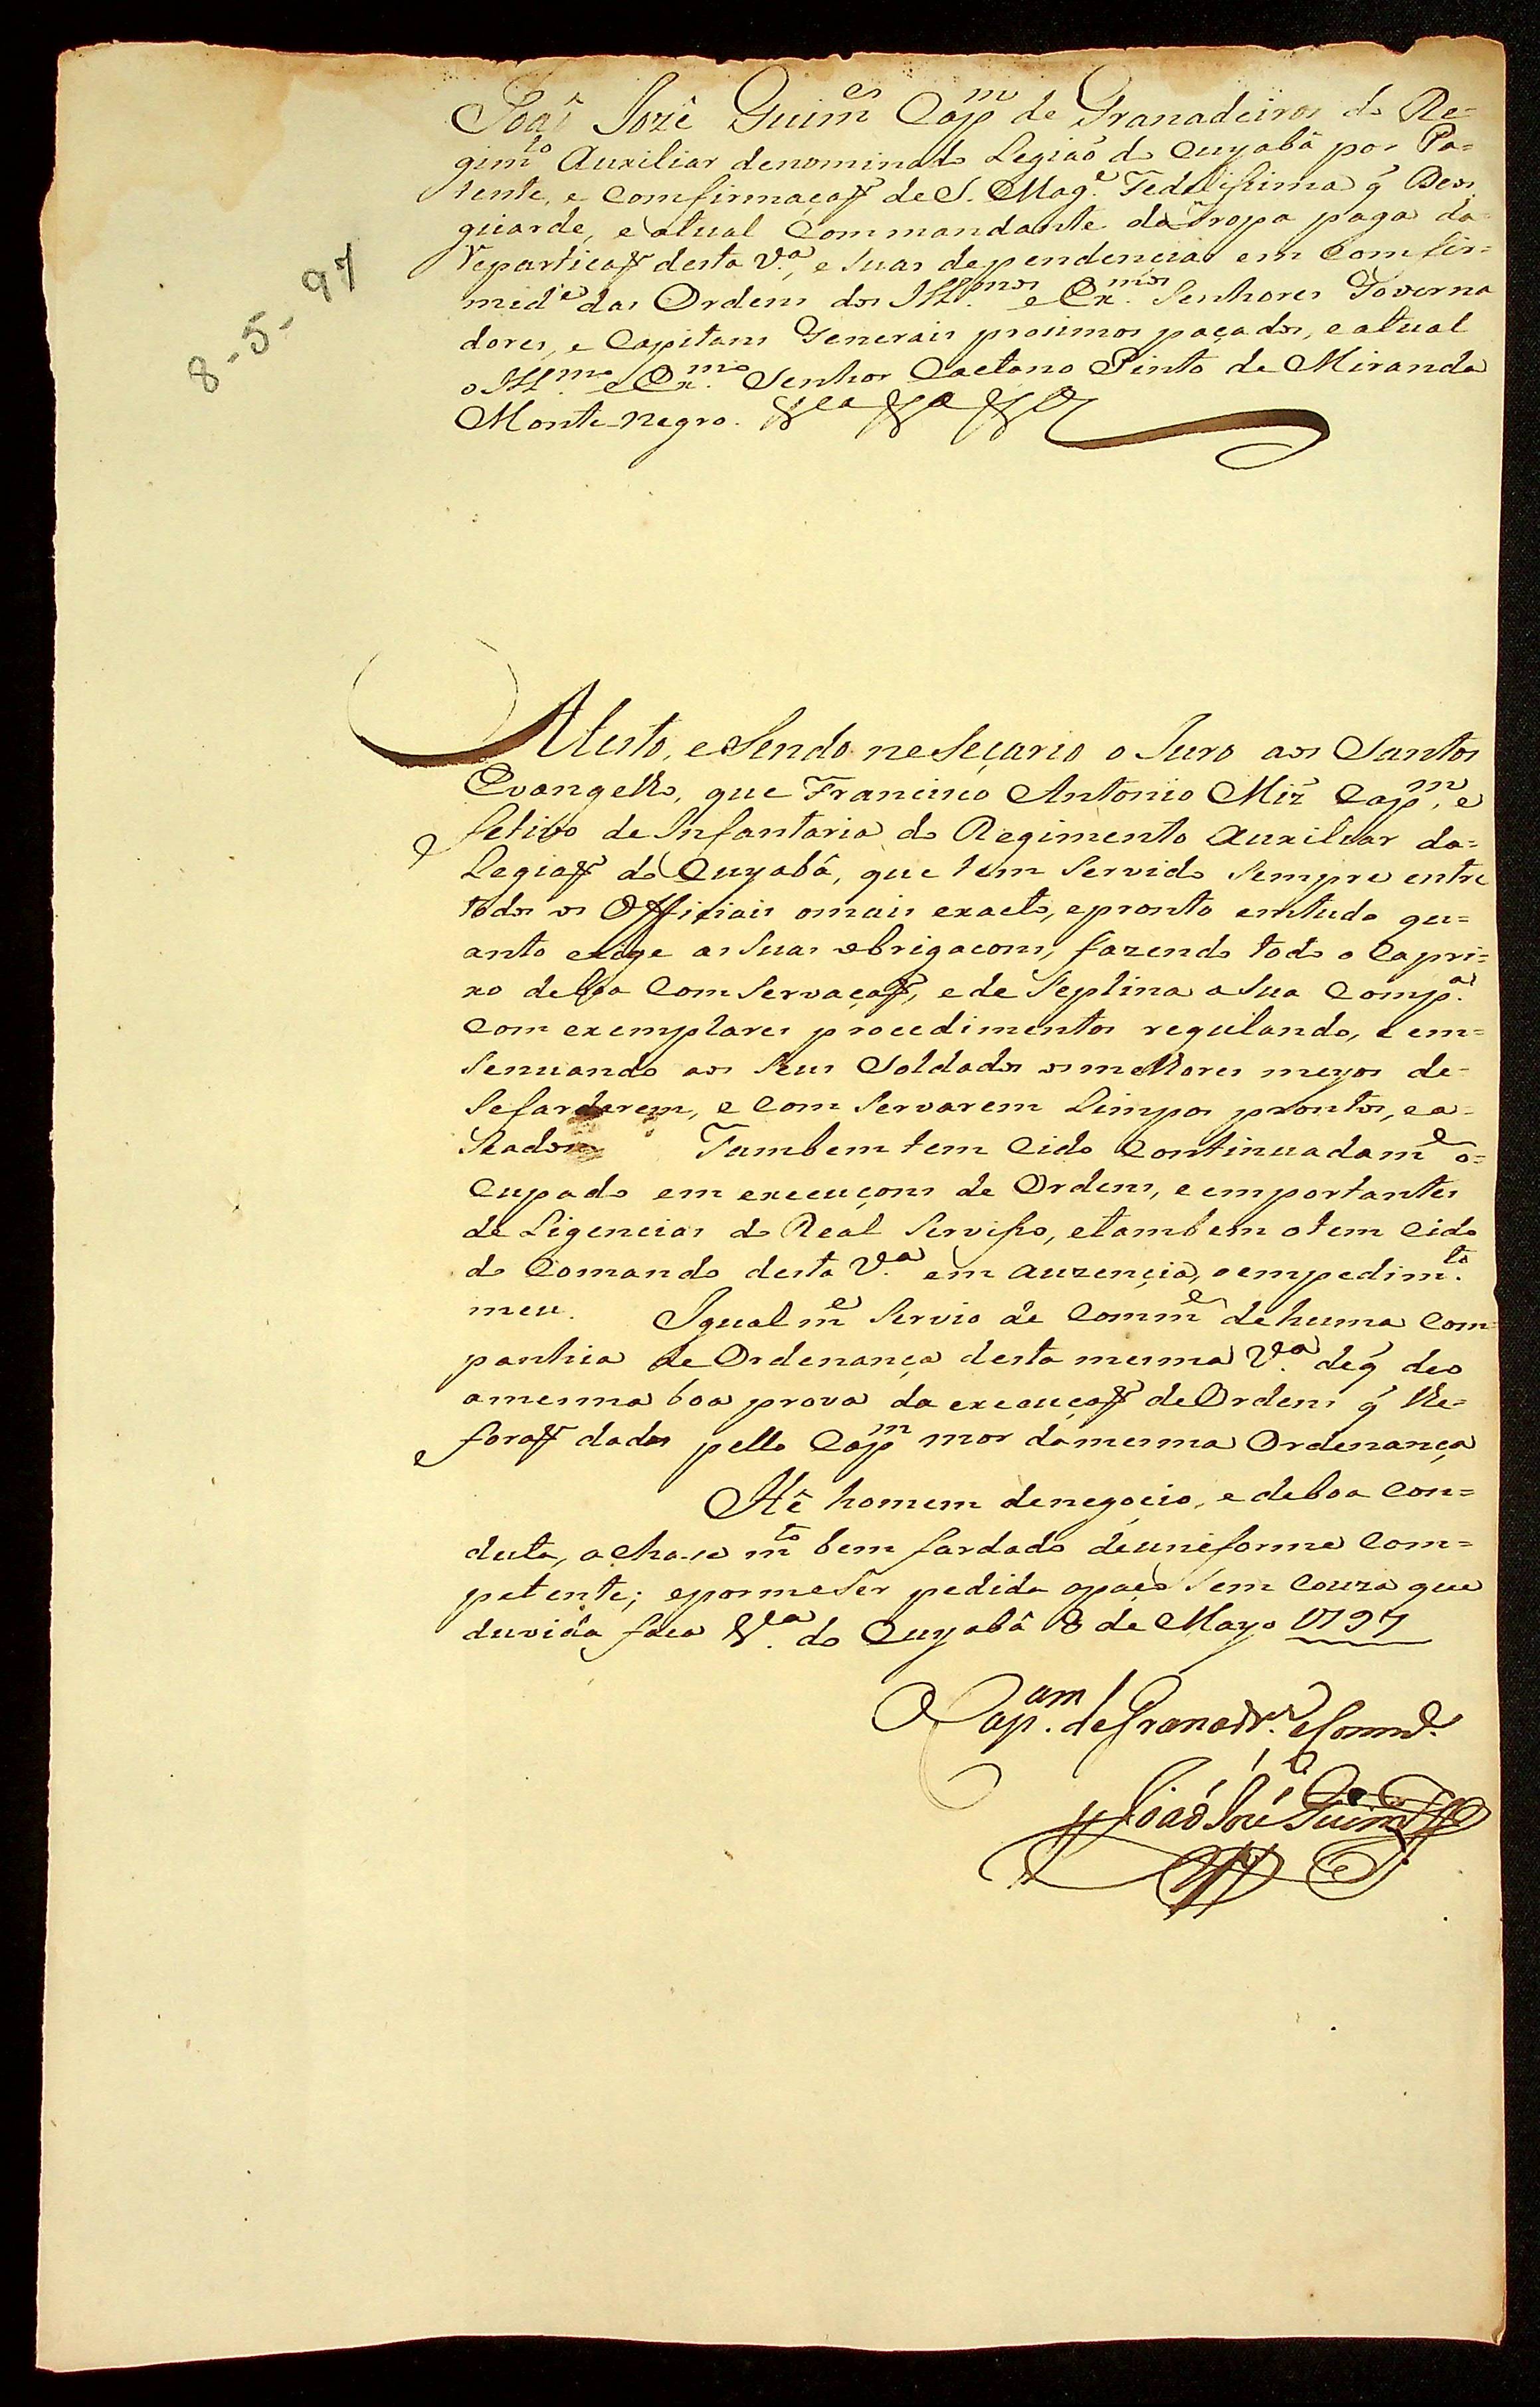 8-5-97
Joaõ Jozê Guim.es Cap.m de Granadeiros do Re=
gim.to Auxiliar denominado Legiaõ do Cuyabâ por Pa=
tente, e Comfirmaçaõ de S. Mag.e Fedelissima q̃ Deos
guarde, e atual Commandante da Tropa paga da
repartiçaõ desta V.a, e suas dependencias em Comfir=
mid.e das Ordens dos Ill.mos e Ex.mos Senhores Governa
dores, e Capitans Generais prosimos paçados, e atual
o Ill.mo e Ex.mo Senhor Caetano Pinto de Miranda
Monte negro. &ca &a &a
Atesto, e Sendo neseçario o Juro aos Santos
Evangelhos, que Francisco Antonio Miz̃ Cap.m e
fetivo de Infantaria do Regimento Auxiliar da=
Legiaõ do Cuyabâ, que tem Servido Sempre entre
todos os Officiais omais exacto, epronto emtudo qu=
anto exige as Suas obrigacons, fazendo todo o Capri=
xo deboa Comservaçaõ, e de Septina a Sua Comp.a
Com exemplares procedimentos regulando, e em=
senuando aos Seus Soldados osmelhores meyos de=
Sefardarem, e Com Servarem Limpos prontos, e a=
Seados Tambem tem Cido Continuadam.e o=
Cupado em execuçons de Ordens, e emportantes
de Ligencias do Real Servisso, etambem otem Cido
do Comando desta V.a em auzençia, e empedim.to
meu. Igualm.e Servio de Comm.e dehuma Com=
panhia de Ordenança desta mesma V.a deq̃ deo
amesma boa prova da execuçaõ deOrdens q̃ lhe=
foraõ dadas pello Cap.m mor damesma Ordenança
Hê homem denegocio, e deboa Con=
duta, achase m.to bem fardado deuneforme Com=
petente; epormeSer pedida apaço Sem Couza que
duvida faca V.a do Cuyabâ 8 de Mayo 1797
O Cap.am de Granadr.os e Comm.e
Joaõ Jozé Guim.es